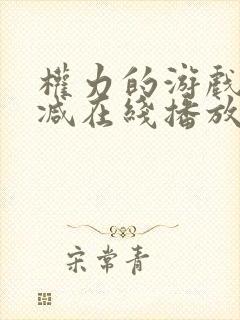 權力的游戲
減在綫播放
宋常青